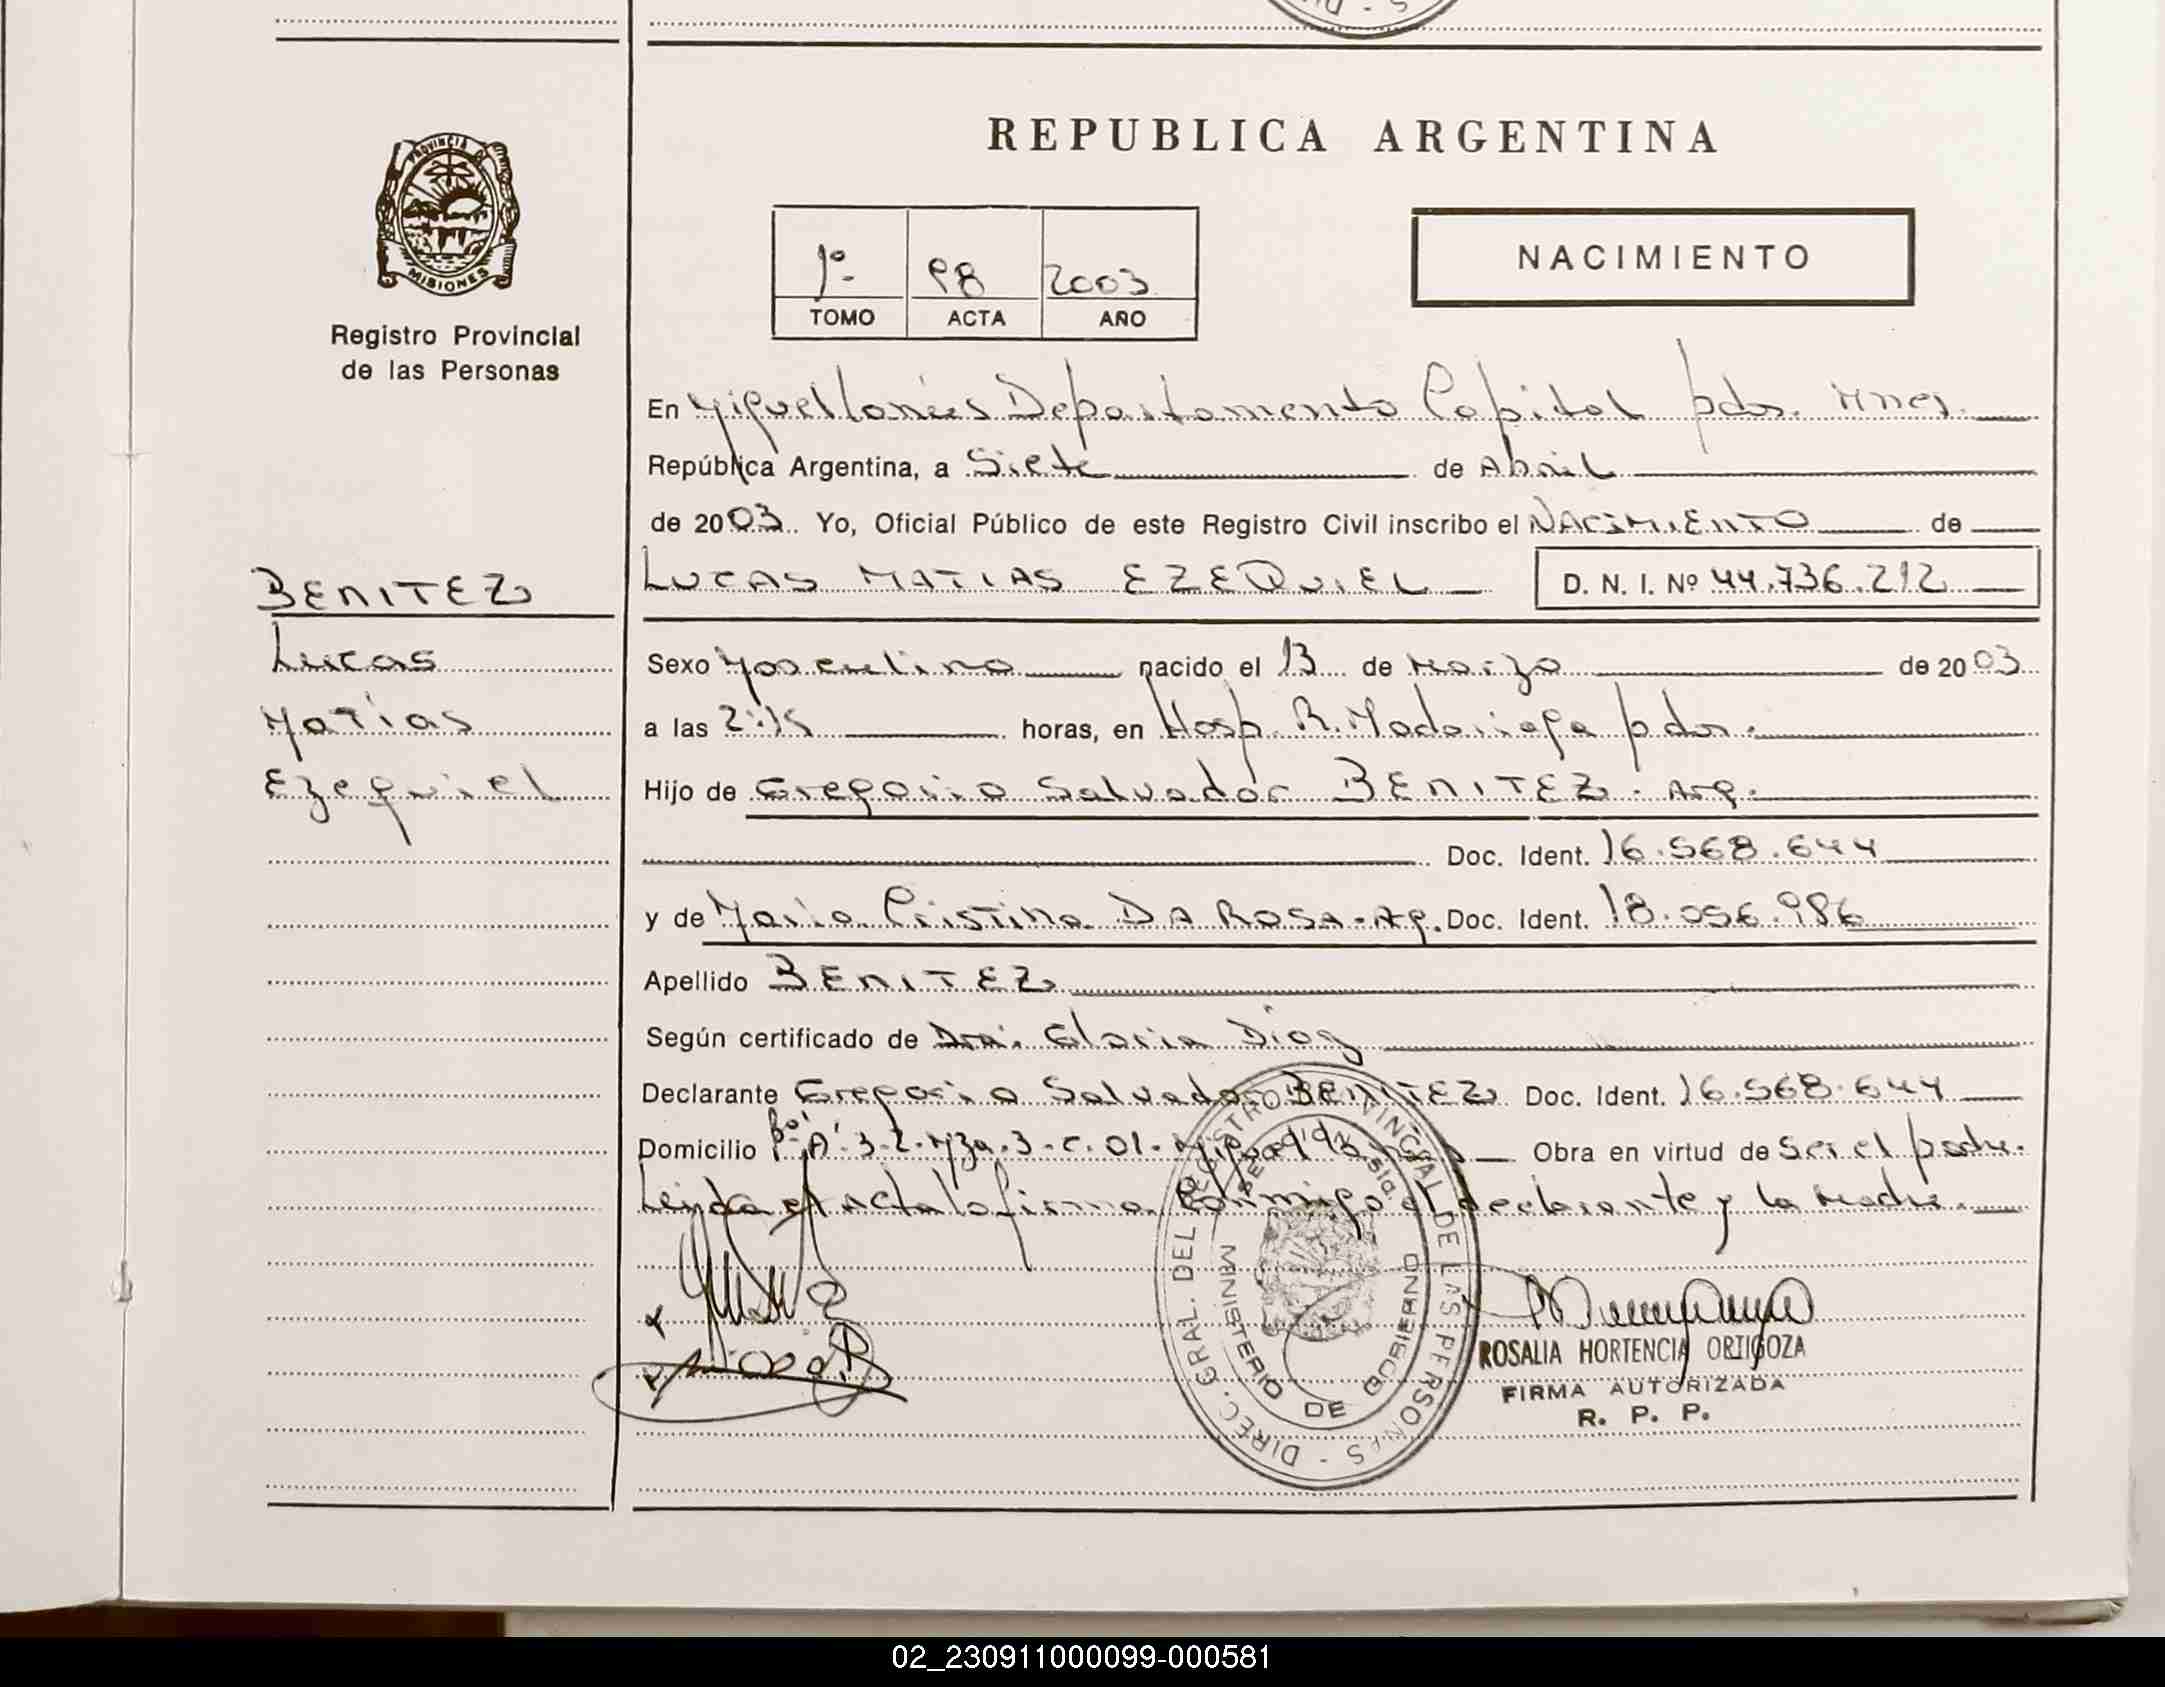 REPUBLICA ARGENTINA
PROVINCIA DE
MISIONES
Registro Provincial
de las Personas
1º 98 2003
TOMO ACTA AÑO
NACIMIENTO
En Miguel Lanús Departamento Capital pdas. Mnes.
República Argentina, a Siete de Abril
de 2003. Yo, Oficial Público de este Registro Civil inscribo el NACIMIENTO de
LUCAS MATIAS EZEQUIEL D. N. I. Nº 44.736.212
BENITEZ
Lucas
Matías
Ezequiel
Sexo Masculino nacido el 13 de Marzo de 2003
a las 2:15 horas, en Hosp. R. Madariaga pdas.
Hijo de Gregorio Salvador BENITEZ. Arg.
Doc. Ident. 16.568.644
y de María Cristina DA ROSA-Arg. Doc. Ident. 18.056.986
Apellido BENITEZ
Según certificado de Dra. Gloria Díaz
Declarante Gregorio Salvador BENITEZ Doc. Ident. 16.568.644
Domicilio Bº "A" 3-2-Mza.3-C.01- Obra en virtud de Ser el padre.
Leída el Acta la firma Conmigo el declarante y la Madre.
DIREC. GRAL. DEL REGISTRO PROVINCIAL DE LAS PERSONAS -
MINISTERIO DE GOBIERNO
ROSALIA HORTENCIA ORTIGOZA
FIRMA AUTORIZADA
R. P. P.
02_230911000099-000581